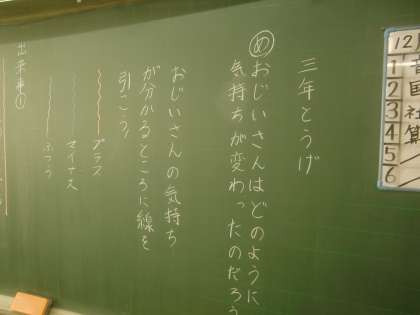 三年とうげ
めおじいさんはどのように
気持ちが変わったのだろう
おじいさんの気持ち
が分かるところに線を
引こう！
プラス
マイナス
ふつう
出来事①
12
1
2
3
4
5
6
音
国
社
算